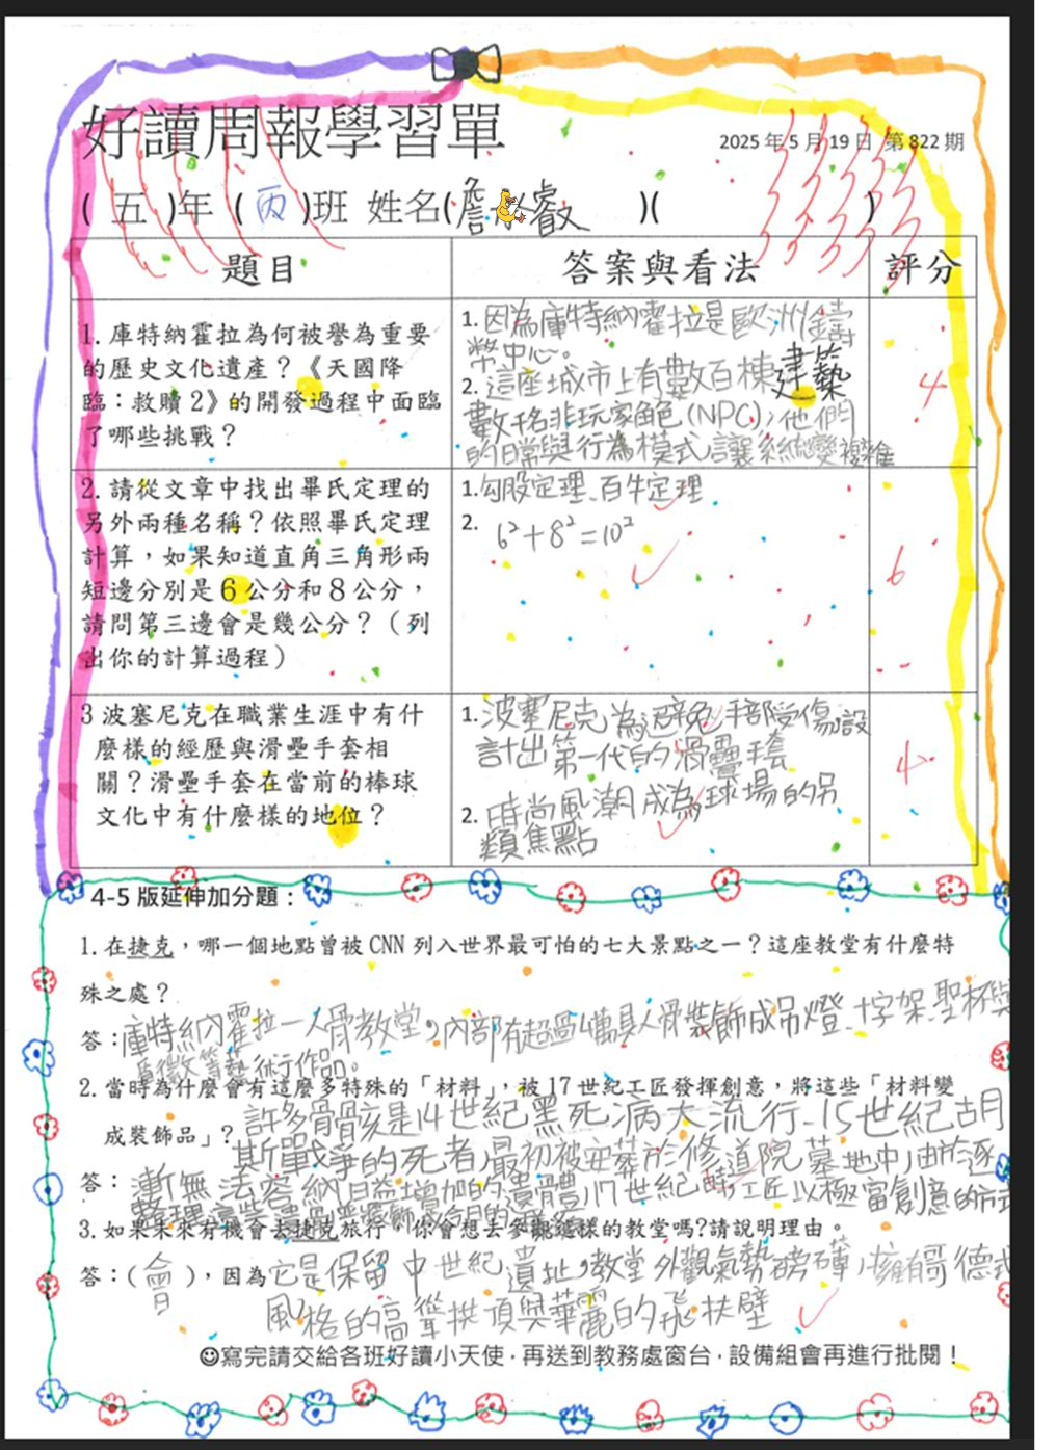 好讀周報學習單
2025年5月19日 第822期
( 五 )年 ( 丙 )班 姓名(詹 叡 )( )
題目 答案與看法 評分
1. 庫特納霍拉為何被譽為重要
的歷史文化遺產？《天國降
臨：救贖2》的開發過程中面臨
了哪些挑戰？
1. 因為庫特納霍拉是歐洲鑄
幣中心。
2. 這座城市上有數百棟建築
數千名非玩家角色(NPC)，他們
的日常與行為模式讓系統變複雜
4
2. 請從文章中找出畢氏定理的
另外兩種名稱？依照畢氏定理
計算，如果知道直角三角形兩
短邊分別是6公分和8公分，
請問第三邊會是幾公分？（列
出你的計算過程）
1. 勾股定理、百牛定理
2. 6²+8²=10²
6
3 波塞尼克在職業生涯中有什
麼樣的經歷與滑壘手套相
關？滑壘手套在當前的棒球
文化中有什麼樣的地位？
1. 波塞尼克為避免手部受傷設
計出第一代的滑壘手套
2. 時尚風潮成為球場的另
類焦點
4
4-5 版延伸加分題：
1. 在捷克，哪一個地點曾被 CNN 列入世界最可怕的七大景點之一？這座教堂有什麼特
殊之處？
答：庫特納霍拉一人骨教堂，內部有超過4萬具人骨裝飾成吊燈、十字架、聖杯與
徽等藝術作品。
2. 當時為什麼會有這麼多特殊的「材料」，被 17 世紀工匠發揮創意，將這些「材料變
成裝飾品」？
許多骨骸是14世紀黑死病大流行、15世紀胡
斯戰爭的死者，最初被安葬於修道院墓地中，由於逐
答：漸無法容納日益增加的遺體，17世紀時，工匠以極富創意的方式
整理這些遺
3. 如果未來有機會去捷克旅行，你會想去參觀這樣的教堂嗎?請說明理由。
答：( 會 )，因為它是保留中世紀遺址，教堂外觀氣勢磅礡，擁有哥德式
風格的高聳拱頂與華麗的飛扶壁
☺寫完請交給各班好讀小天使，再送到教務處窗台，設備組會再進行批閱！